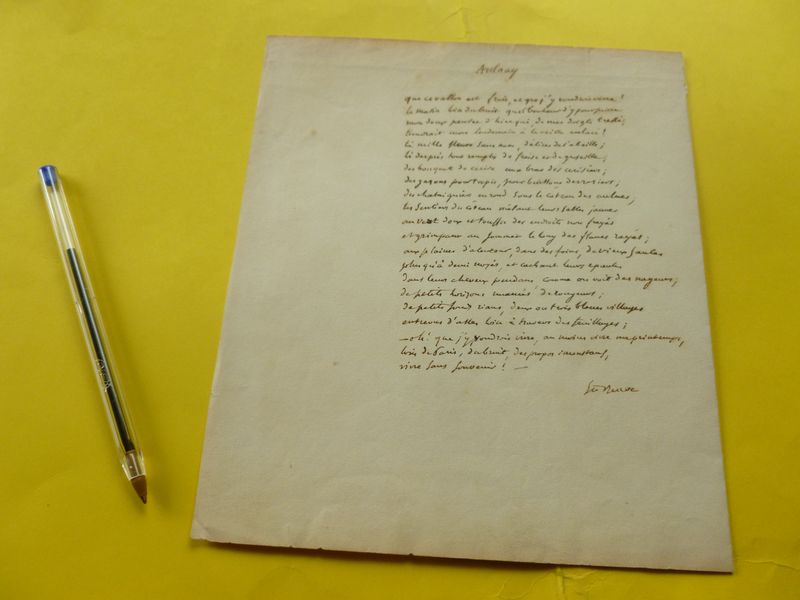 Aulnay
que ce vallon est frais, et que j'y voudrais vivre!
le matin loin du bruit quel bonheur d'y poursuivre
mon doux penser d'hier qui, de mes doigts tressé,
tiendrait mon lendemain à la veille enlacé!
là mille fleurs sans nom, délices de l'abeille;
là des prés tous remplis de fraise et de groseille;
des bouquets de cerise aux bras des cerisiers;
des gazons pour tapis, pour buissons des rosiers;
des châtaigniers en rond sous le côteau des aulnes;
les sentiers du côteau mêlant leurs sables jaunes
au vert doux et touffu des endroits non frayés
et grimpant au sommet le long des flancs rayés;
aux plaines d'alentour, dans des foins, de vieux saules
plus qu'à demi noyés, et cachant leurs épaules
dans leurs cheveux pendans comme on voit des nageurs;
de petits horizons nuancés de rougeurs;
de petits fonds rians, deux ou trois blancs villages
entrevus d'assez loin à travers des feuillages;
— oh! que j'y voudrais vivre, au moins vivre un printemps,
loin de Paris, du bruit, des propos inconstans,
vivre sans souvenir! —
Ste Beuve